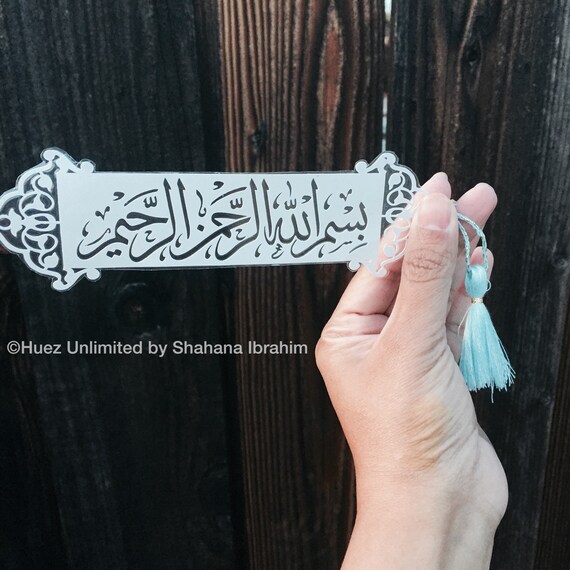 بِسْمِ اللهِ الرَّحْمٰنِ الرَّحِيْمِ
©Huez Unlimited by Shahana Ibrahim